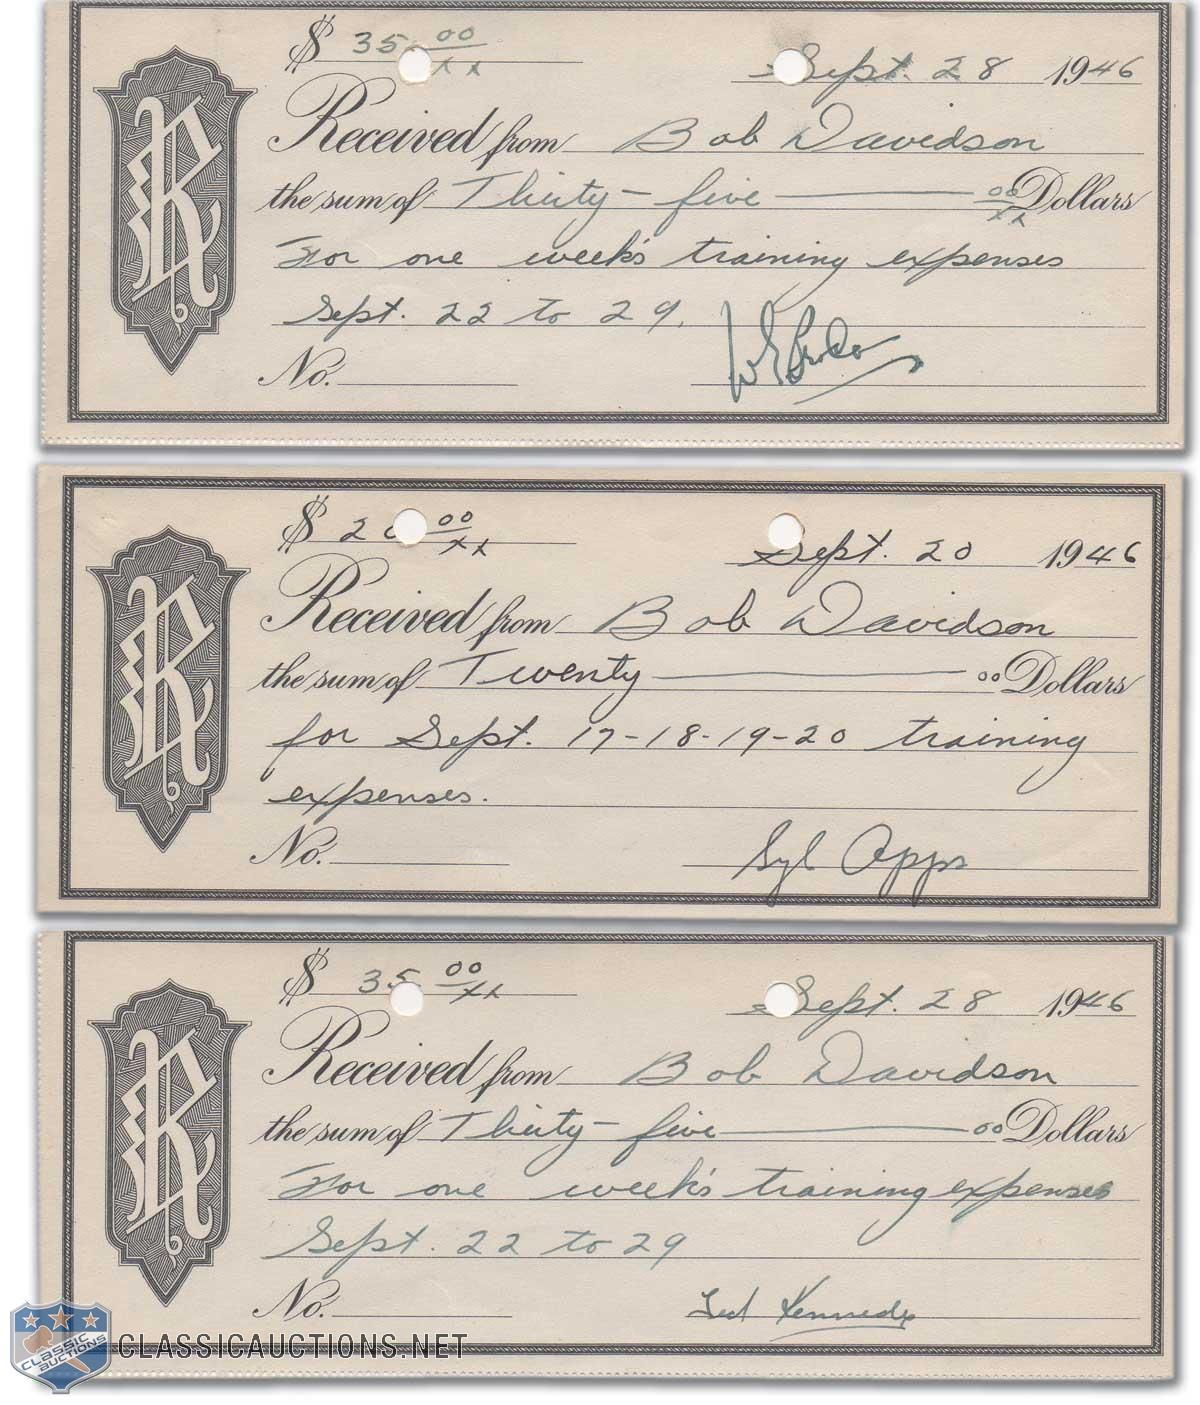 $ 35 00/xx
Sept. 28 1946
Received from Bob Davidson
the sum of Thirty-five 00/xx Dollars
For one week's training expenses
Sept. 22 to 29.
No.
$ 20 00/xx
Sept. 20 1946
Received from Bob Davidson
the sum of Twenty 00 Dollars
for Sept. 17-18-19-20 training
expenses.
No. Syl Apps
$ 35 00/xx
Sept. 28 1946
Received from Bob Davidson
the sum of Thirty-five 00 Dollars
For one week's training expenses
Sept. 22 to 29
No. Ted Kennedy
CLASSIC
AUCTIONS
CLASSICAUCTIONS.NET